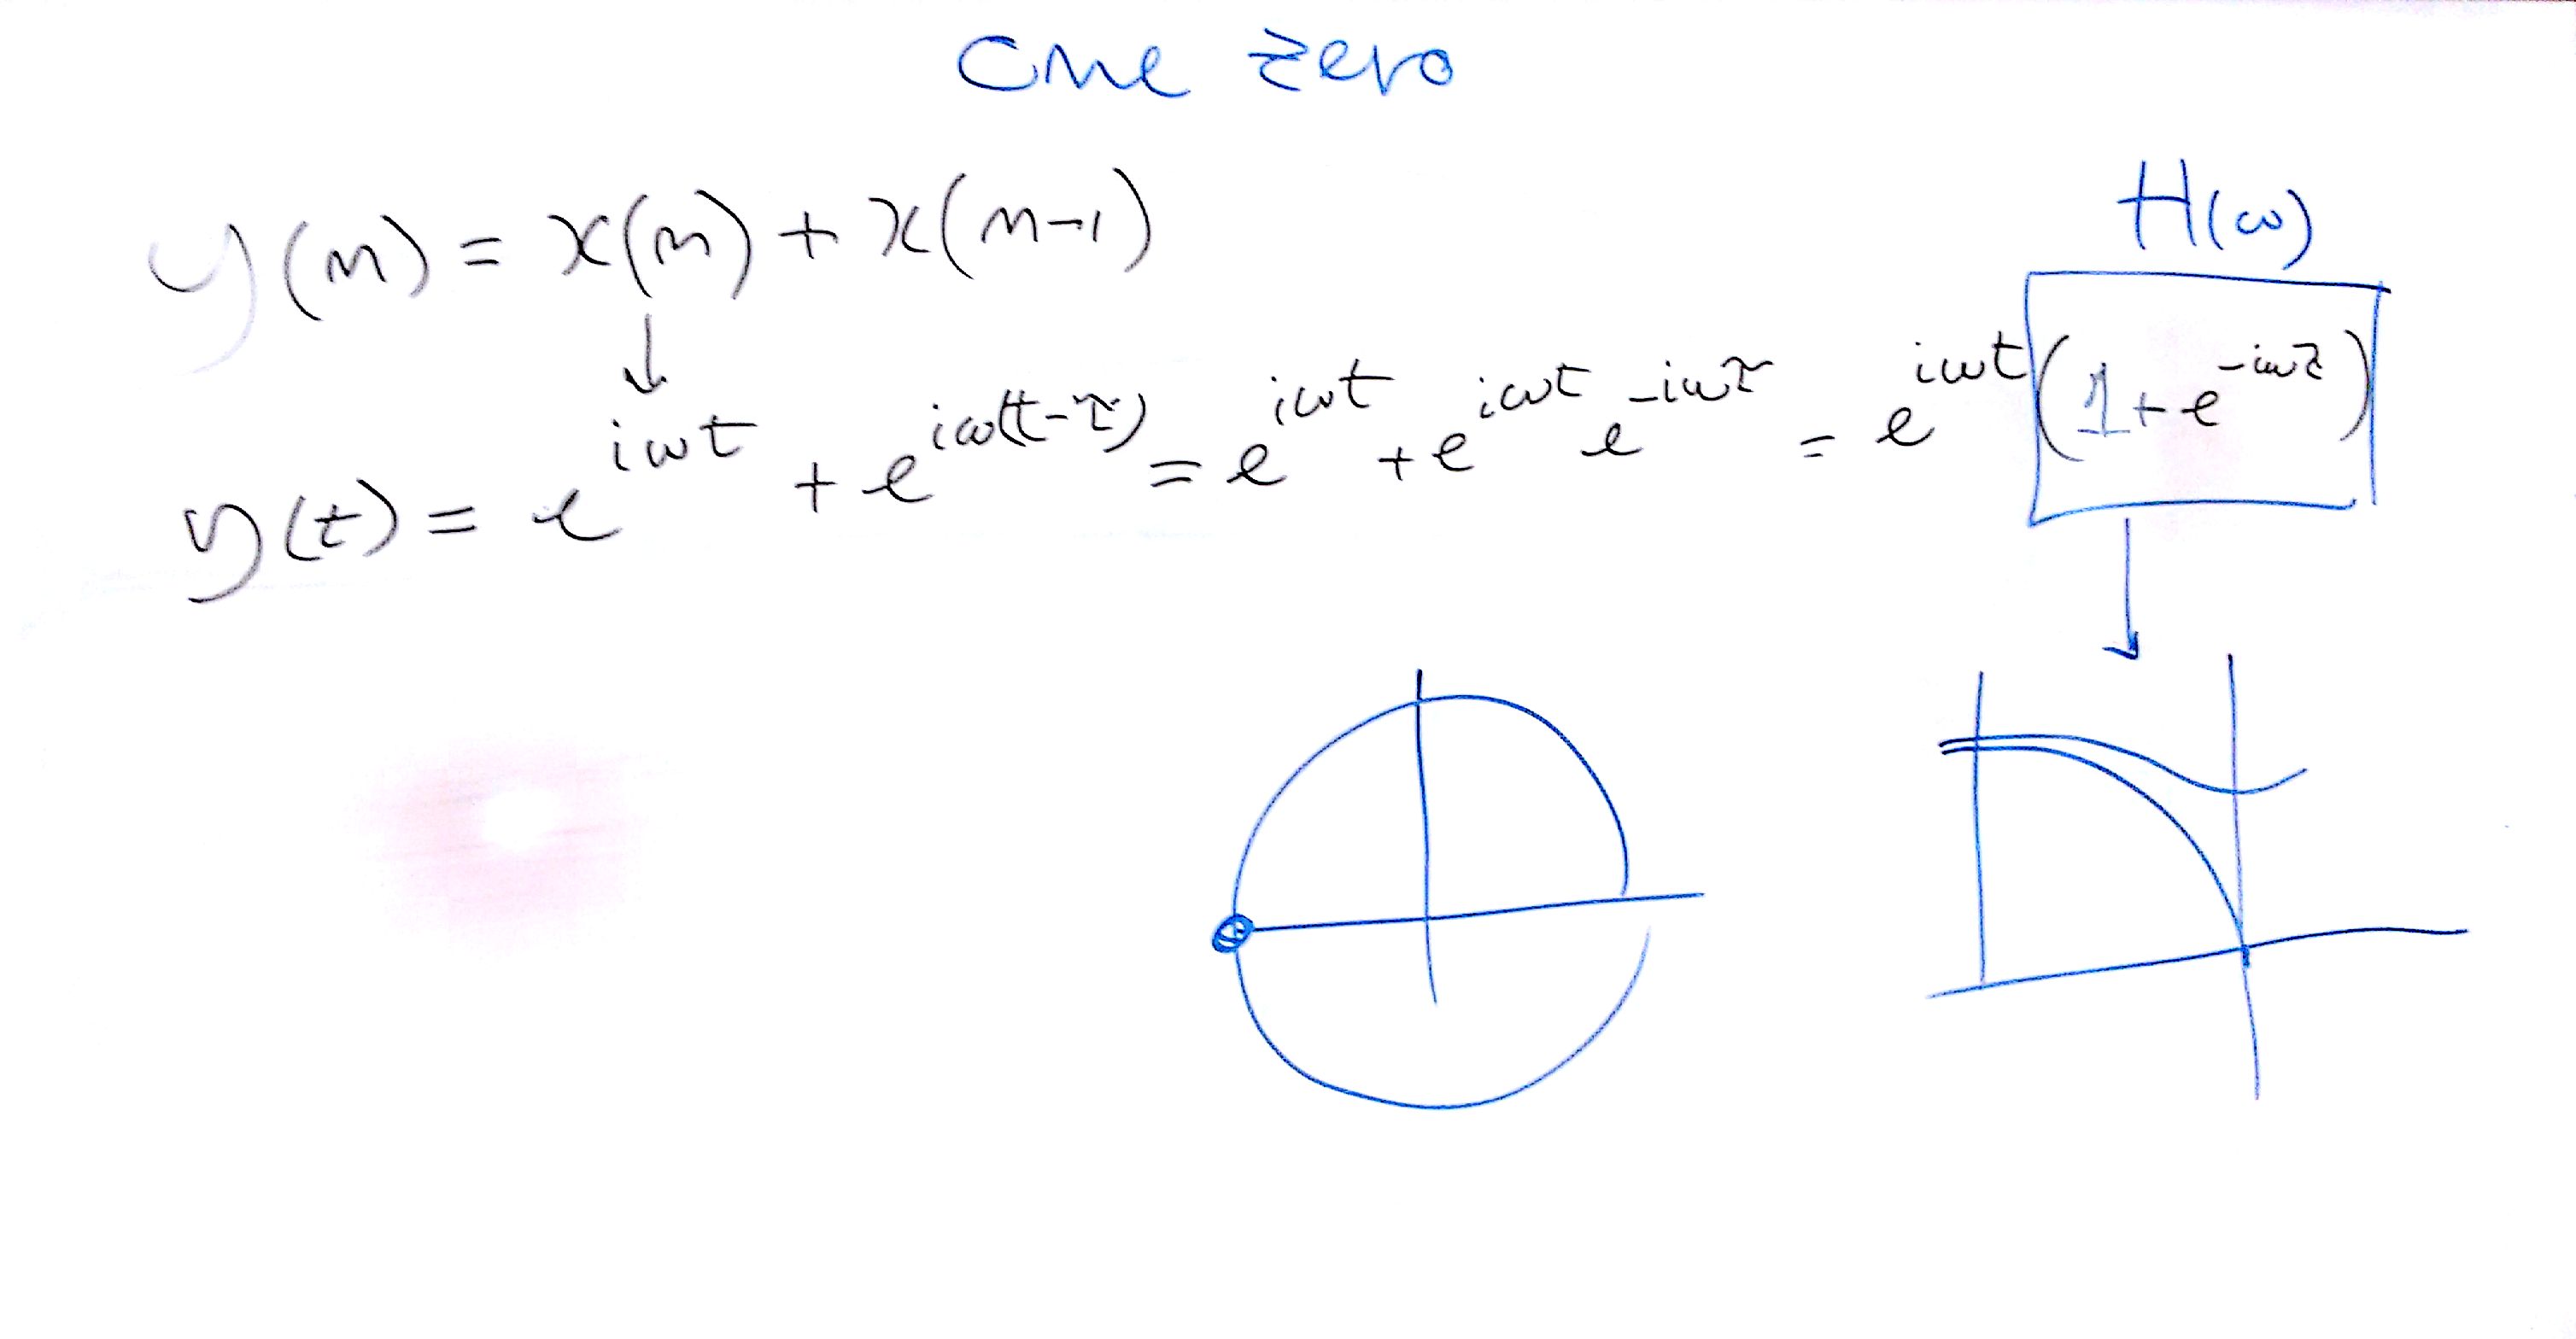 one zero
y(n) = x(n) + x(n-1)
H(ω)
y(t) = e^{iωt} + e^{iω(t-τ)} = e^{iωt} + e^{iωt} e^{-iωτ} = e^{iωt} (1 + e^{-iωτ})